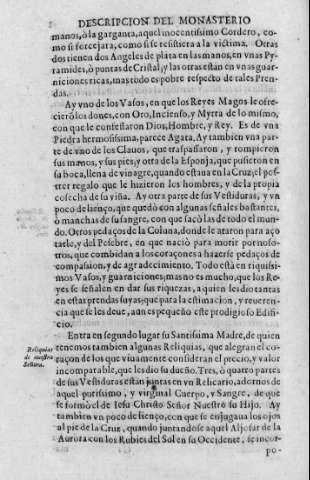 DESCRIPCION DEL MONASTERIO
manos, ò la garganta, aquel inocentissimo Cordero, co-
mo si forcejara, como si se resistiera a la victima. Otras
dos tienen dos Angeles de plata en las manos, en vnas Py-
ramides, ò puntas de Cristal, y las otras estàn en vnas guar-
niciones ricas, mas todo es pobre respeto de tales Pren-
das.
Ay vno de los Vasos, en que los Reyes Magos le ofre-
cierõ los dones, con Oro, Incienso, y Myrra de lo mismo,
con que le confessaron Dios, Hombre, y Rey. Es de vna
Piedra hermosissima, parece Agata. Ay tambien vna par-
te de vno de los Clauos, que traspassaron, y rompieron
sus manos, y sus pies, y otra de la Esponja, que pusieron en
su boca, llena de vinagre, quando estaua en la Cruz, el pos-
trer regalo que le hizieron los hombres, y de la propia
cosecha de su viña. Ay otra parte de sus Vestiduras, y vn
poco de lienço, que quedò con algunas señales bastantes,
ò manchas de su sangre, con que sacò las de todo el mun-
do. Otros pedaços de la Coluna, donde le ataron para aço
tarle, y del Pesebre, en que naciò para morir por noso-
tros, que combidan a los coraçones a hazerse pedaços de
compassion, y de agradecimiento. Todo està en riquissi-
mos Vasos, y guarniciones; mas no es mucho, que los Re-
yes se señalen en dar sus riquezas, a quien les dio tantas
en estas prendas suyas; que para la estimacion, y reueren-
cia que se les deue, aun es pequeño este prodigioso Edifi-
cio.
Entra en segundo lugar su Santissima Madre, de quien
Reliquias
de nuestra
Señora.
tenemos tambien algunas Reliquias, que alegran el co-
raçon de los que viuamente consideran el precio, y valor
incomparable, que les dio su dueño. Tres, ò quatro partes
de sus Vestiduras estàn juntas en vn Relicario, adornos de
aquel purissimo, y virginal Cuerpo, y Sangre, de que
se formò el de Iesu Christo Señor Nuestro su Hijo. Ay
tambien vn poco de lienço, con que se enjugaua los ojos
al pie de la Cruz, quando juntandose aquel Aljofar de la
Aurora con los Rubies del Sol en su Occidente, se incor-
po-